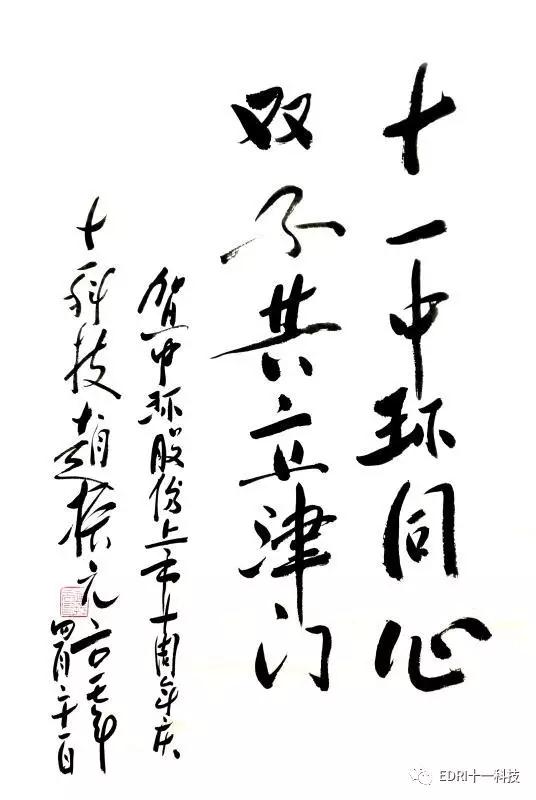 十一中环同心
双子共立津门
贺中环股份上市十周年庆
十一科技赵振元二〇一七年
四月二十一日
EDRI十一科技